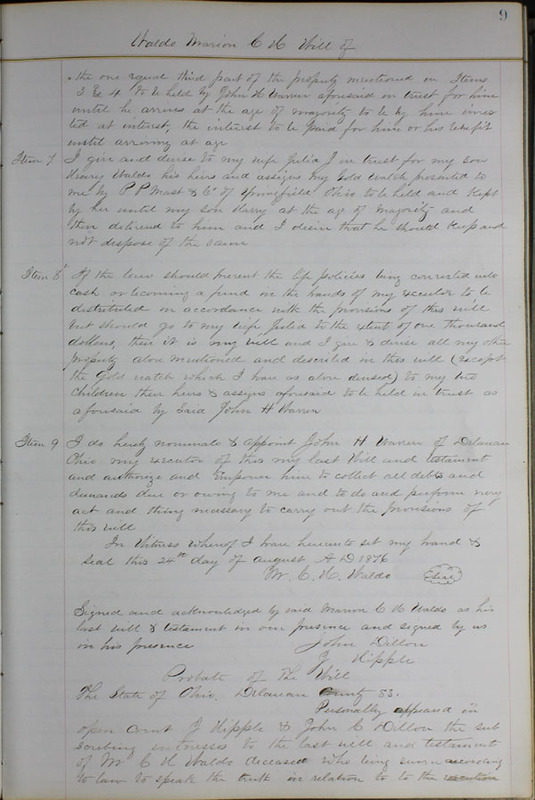 9
Waldo Marion C H Will of
the one equal third part of the property mentioned in Items
3 & 4 to be held by John H Warren aforesaid in trust for him
until he arrives at the age of majority to be by him inves
ted at interest, the interest to be paid for him or his benefit
until arriving at age
Item 7 I give and devise to my wife Julia J in trust for my son
Harry Waldo his heirs and assigns my Gold Watch presented to
me by P P Mast & Co of Springfield Ohio to be held and kept
by her until my son Harry at the age of majority and
then delivered to him and I desire that he should keep and
not dispose of the same
Item 8 If the law should prevent the life policies being converted into
cash or becoming a fund in the hands of my executor to be
distributed in accordance with the provisions of this will
but should go to my wife Julia to the extent of one thousand
dollars, then it is my will and I give & devise all my other
property above mentioned and described in this will (except
the Gold watch which I have as above devised) to my two
children their heirs & assigns aforesaid to be held in trust as
aforesaid by said John H Warren
Item 9 I do hereby nominate & appoint John H Warren of Delaware
Ohio my executor of this my last Will and testament
and authorize and Empower him to collect all debts and
demands due or owing to me and to do and perform every
act and thing necessary to carry out the provisions of
this will
In Witness whereof I have hereunto set my hand &
seal this 24th day of August A D 1876
M. C. H. Waldo Seal
Signed and acknowledged by said Marion C H Waldo as his
last will & testament in our presence and signed by us
in his presence John Dillon
J Hipple
Probate of The Will
The State of Ohio, Delaware County SS.
Personally appeared in
open Court J Hipple & John C Dillon the sub
scribing witnesses to the last will and testament
of M C H Waldo deceased who being sworn according
to law to speak the truth in relation to to the execution